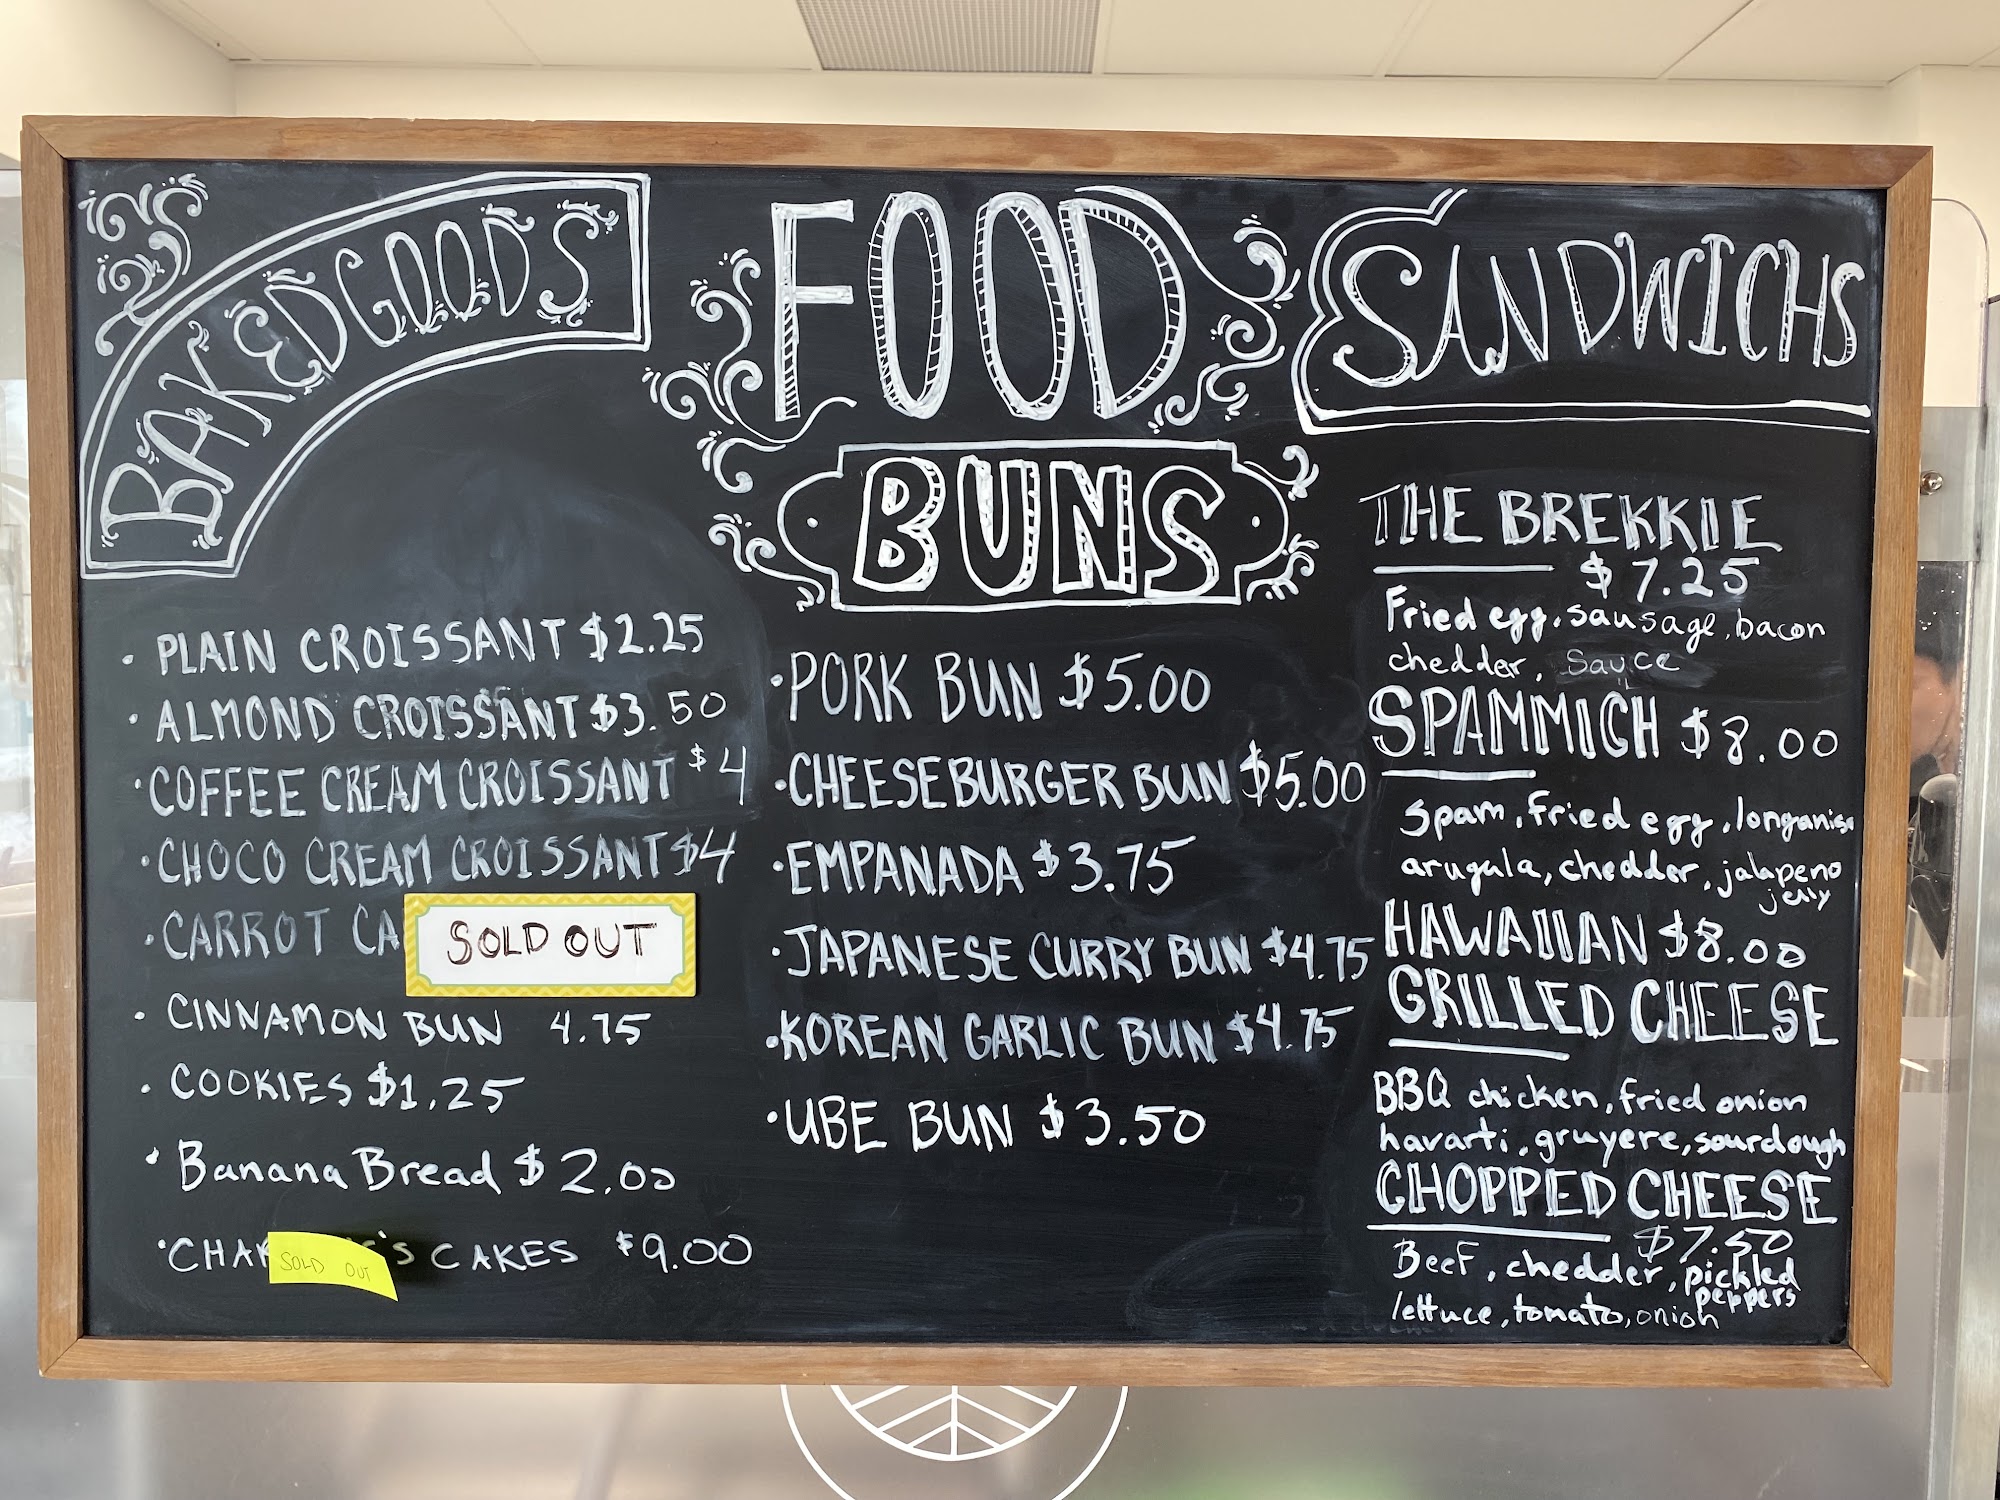 BAKED GOODS
· PLAIN CROISSANT $2.25
· ALMOND CROISSANT $3.50
· COFFEE CREAM CROISSANT $4
· CHOCO CREAM CROISSANT $4
· CARROT CA
SOLD OUT
· CINNAMON BUN 4.75
· COOKIES $1.25
· Banana Bread $2.00
· 's CAKES $9.00
SOLD OUT
FOOD
BUNS
· PORK BUN $5.00
· CHEESEBURGER BUN $5.00
· EMPANADA $3.75
· JAPANESE CURRY BUN $4.75
· KOREAN GARLIC BUN $4.75
· UBE BUN $3.50
SANDWICHS
THE BREKKIE
$7.25
Fried egg, sausage, bacon
chedder, Sauce
SPAMMICH $8.00
Spam, Fried egg, longanisa
arugala, chedder, jalapeno
jelly
HAWAIIAN $8.00
GRILLED CHEESE
BBQ chicken, fried onion
havarti, gruyere, sourdough
CHOPPED CHEESE
$7.50
Beef, chedder, pickled
peppers
lettuce, tomato, onion